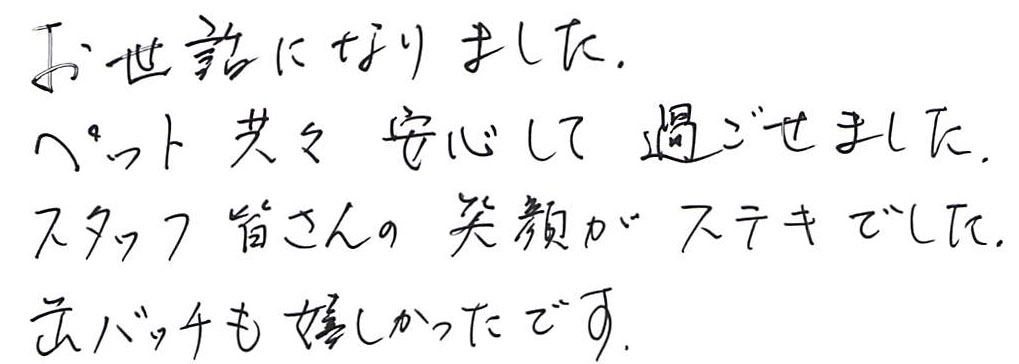 お世話になりました.
ペット共々 安心して 過ごせました.
スタッフ皆さんの 笑顔が ステキでした.
缶バッチも嬉しかったです.